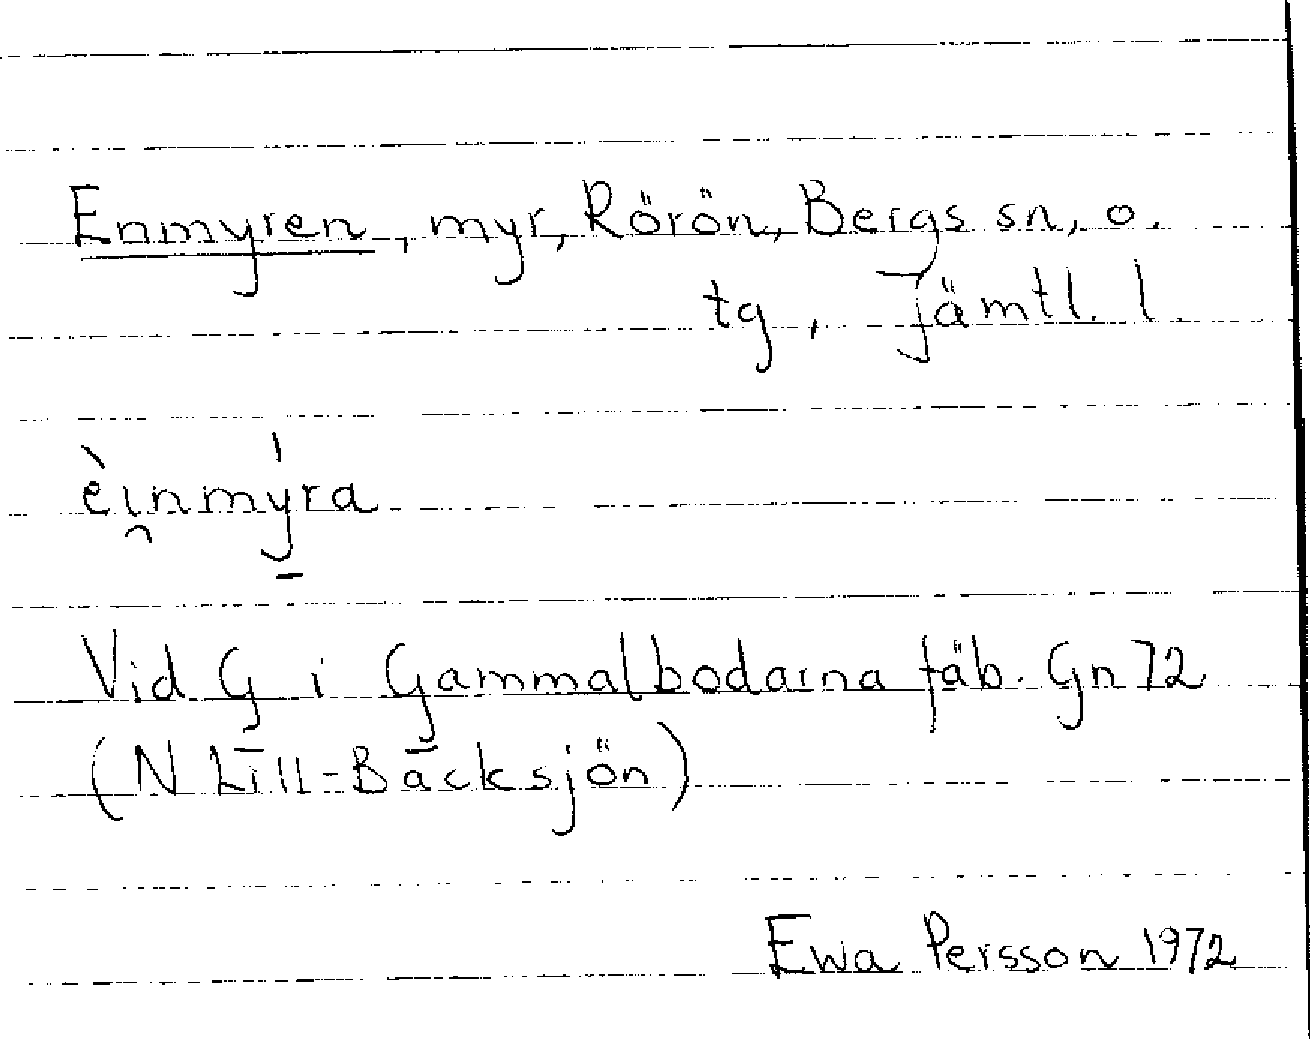 Enmyren, myr, Rörön, Bergs sn, o.
tg, Jämtl. l.
èi̯nmý̱ra
Vid G i Gammalbodarna fäb. Gn 72
(N Lill-Bäcksjön)
Ewa Persson 1972